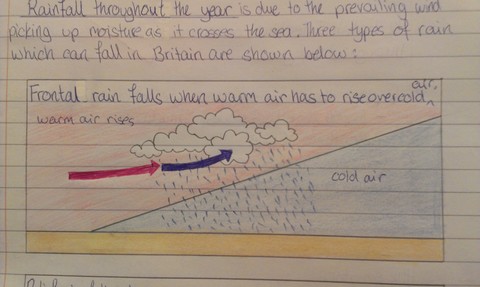 Rainfall throughout the year is due to the prevailing wind
picking up moisture as it crosses the sea. Three types of rain
which can fall in Britain are shown below:
Frontal rain falls when warm air has to rise over cold air.
warm air rises
cold air